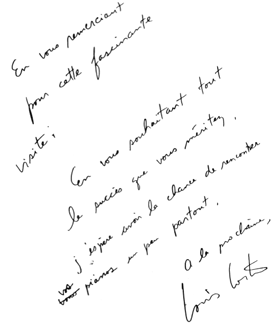 En vous remerciant
pour cette fascinante
visite ;
En vous souhaitant tout
le succès que vous méritez,
j'espère avoir la chance de rencontrer
vos pianos un peu partout.
A la prochaine,
Louis